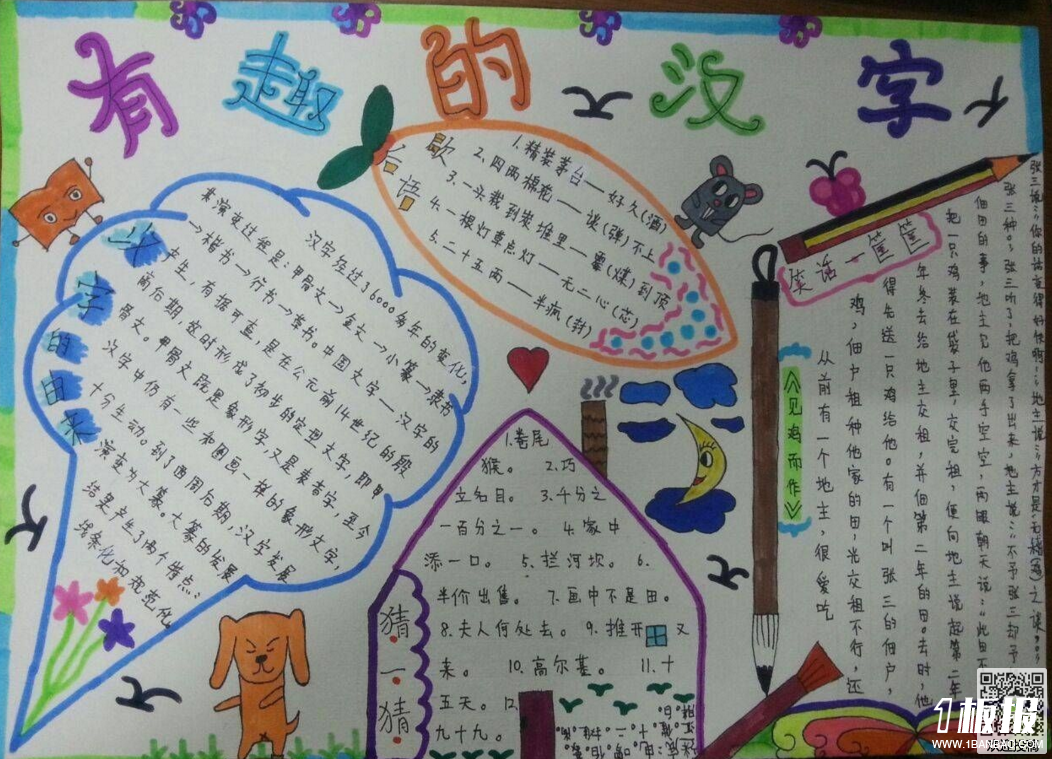 有趣的汉字
汉字的由来
汉字经过6000多年的变化,
其演变过程是:甲骨文→金文→小篆→隶书
→楷书→行书→草书。中国文字——汉字的
产生,有据可查,是在公元前14世纪的殷
商后期,这时形成了初步的定型文字,即甲
骨文。甲骨文既是象形字,又是表音字,至今
汉字中仍有一些和图画一样的象形文字,
十分生动。到了西周后期,汉字发展
演变为大篆。大篆的发展
结果产生了两个特点:
线条化和规范化
歇后语
1.精装茅台——好久(酒)
2.四两棉花——谈(弹)不上
3.一头栽到炭堆里——霉(煤)到顶
4.一根灯草点灯——无二心(芯)
5.二十五两——半疯(封)
猜一猜
1.卷尾
猴。 2.巧
立名目。 3.千分之
一百分之一。 4.家中
添一口。 5.拦河坎。 6.
半价出售。 7.画中不是田。
8.夫人何处去。 9.推开 又
来。 10.高尔基。 11.十
五天。 12
九十九。
笑话一筐筐
《见鸡而作》
从前有一个地主,很爱吃
鸡,佃户租种他家的田,光交租不行,还
得先送一只鸡给他。有一个叫张三的佃户,
年冬去给地主交租,并佃第二年的田。去时,他
把一只鸡装在袋子里,交完租,便向地主说起第二年
佃田的事,地主见他两手空空,两眼朝天说:“此田不
张三种。”张三听了,把鸡拿了出来,地主说:“不予张三却予
张三说:“你的话变得好快啊!”地主说:“方才是‘无稽(鸡)之谈’
1板报
WWW.1BANBAO.COM
欢迎投稿